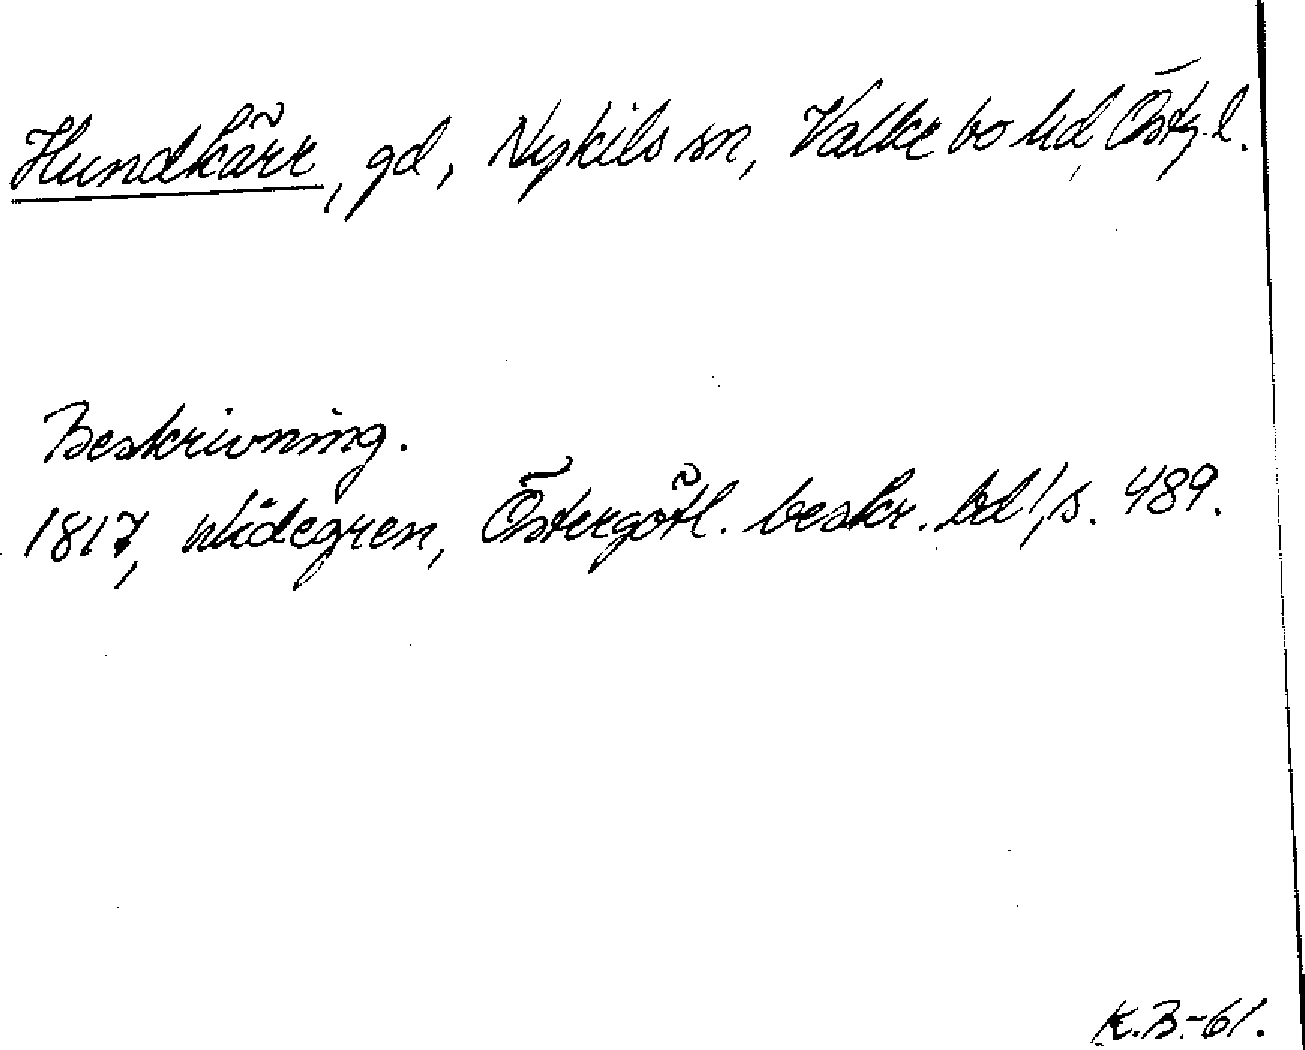 Hundkärr, gd, Nykils sn, Valkebo hd, Östg.l.
Beskrivning.
1817, Widegren, Östergötl. beskr. bd 1, s. 489.
K.B.-61.